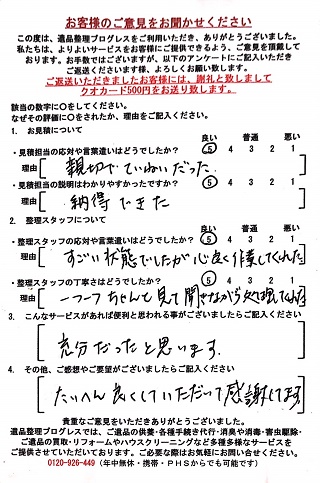 お客様のご意見をお聞かせください
この度は、遺品整理プログレスをご利用いただき、ありがとうございました。
私たちは、よりよいサービスをお客様にご提供できるよう、ご意見を頂戴して
おります。お手数ではございますが、以下のアンケートにご記入いただき
ご返送くださいます様、よろしくお願い致します。
ご返送いただきましたお客様には、謝礼と致しまして
クオカード500円をお送り致します。
該当の数字に〇をしてください。
なぜその評価に〇をされたか、理由をご記入ください。
1. お見積について
良い 普通 悪い
・見積担当の応対や言葉遣いはどうでしたか? 5 4 3 2 1
理由 親切でていねいだった
・見積担当の説明はわかりやすかったですか? 5 4 3 2 1
理由 納得できた
2. 整理スタッフについて
良い 普通 悪い
・整理スタッフの応対や言葉遣いはどうでしたか? 5 4 3 2 1
理由 すごい状態でしたが心良く作業してくれた
・整理スタッフの丁寧さはどうでしたか? 5 4 3 2 1
理由 一つ一つちゃんと見て聞きながら処理してくれた
3. こんなサービスがあれば便利と思われる事がございましたらご記入ください
充分だったと思います.
4. その他、ご感想やご要望がございましたらご記入ください
たいへん良くしていただいて感謝してます
貴重なご意見をいただきありがとうございました。
遺品整理プログレスでは、ご遺品の供養・各種手続き代行・消臭や消毒・害虫駆除・
ご遺品の買取・リフォームやハウスクリーニングなど多種多様なサービスを
ご提供させていただいております。ご必要な際はお気軽にお問い合せください。
0120-926-449（年中無休・携帯・PHSからでも可能です）